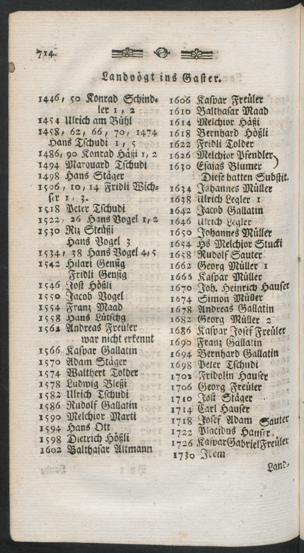 714
Landvögt ins Gaster.
1446, 50 Konrad Schind-
ler 1, 2
1454 Ulrich am Bühl
1458, 62, 66, 70, 1474
Hans Tschudi 1, 5
1486, 90 Konrad Häßi 1, 2
1494 Marquard Tschudi
1498 Hans Stäger
1506, 10, 14 Fridli Wich-
ser 1. 3.
1518 Peter Tschudi
1522, 26 Hans Vogel 1, 2
1530 Rü Steüßi
Hans Vogel 3
1534, 38 Hans Vogel 4, 5
1542 Hilari Gensig
Fridli Gensig
1546 Jost Hößli
1550 Jacob Vogel
1554 Franz Maad
1558 Hans Lütschg
1562 Andreas Freüler
war nicht erkennt
1566 Kaspar Gallatin
1570 Adam Stäger
1574 Walthert Tolder
1578 Ludwig Bleßi
1582 Ulrich Tschudi
1586 Rudolf Gallatin
1590 Melchior Marti
1594 Hans Ott
1598 Dietrich Hößli
1602 Balthasar Altmann
1606 Kaspar Freüler
1610 Balthasar Maad
1614 Melchior Häßi
1618 Bernhard Hößli
1622 Fridli Tolder
1626 Melchior Pfendler
1630 Esajas Blumer
Diese hatten Substit.
1634 Johannes Müller
1638 Ulrich Legler 1
1642 Jacob Gallatin
1646 Ulrich Legler
1650 Johannes Müller
1654 Hs Melchior Stucki
1658 Rudolf Sauter
1662 Georg Müller 1
1666 Kaspar Müller
1670 Joh. Heinrich Hauser
1674 Simon Müller
1678 Andreas Gallatin
1682 Georg Müller 2
1686 Kaspar Josef Freüler
1690 Franz Gallatin
1694 Bernhard Gallatin
1698 Peter Tschudi
1702 Fridolin Hauser
1706 Georg Freüler
1710 Jost Stäger
1714 Carl Hauser
1718 Josef Adam Sauter
1722 Placidus Hauser
1726 Kaspar Gabriel Freüler
1730 Item
Land-